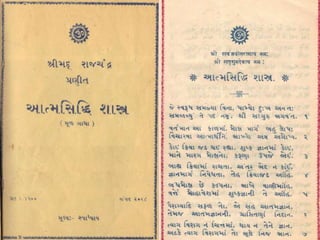 શ્રીમદ્ રાજચંદ્ર
પ્રણીત
આત્મસિદ્ધિ શાસ્ત્ર
(મૂળ ગાથા)
મૂલ્યઃ સ્વાધ્યાય
આત્મસિદ્ધિ શાસ્ત્ર.
જે સ્વરૂપ સમજ્યા વિના, પામ્યો દુઃખ અનંત;
સમજાવ્યું તે પદ નમું, શ્રી સદ્ગુરુ ભગવંત. ૧
વર્તમાન આ કાળમાં, મોક્ષ માર્ગ બહુ લોપ;
વિચારવા આત્માર્થીને, ભાખ્યો અત્ર અગોપ્ય. ૨
કોઈ ક્રિયા જડ થઈ રહ્યા, શુષ્ક જ્ઞાનમાં કોઈ;
માને મારગ મોક્ષનો, કરુણા ઉપજે જોઈ. ૩
બાહ્ય ક્રિયામાં રાચતા, અંતર ભેદ ન કાંઈ;
જ્ઞાનમાર્ગ નિષેધતા, તેહ ક્રિયાજડ આંહિ. ૪
બંધ મોક્ષ છે કલ્પના, ભાખે વાણી માંહિ;
વર્તે મોહાવેશમાં, શુષ્કજ્ઞાની તે આંહિ. ૫
વૈરાગ્યાદિ સફળ તો, જો સહ આતમજ્ઞાન;
તેમજ આતમજ્ઞાનની, પ્રાપ્તિતણાં નિદાન. ૬
ત્યાગ વિરાગ ન ચિત્તમાં, થાય ન તેને જ્ઞાન;
અટકે ત્યાગ વિરાગમાં, તો ભૂલે નિજ ભાન. ૭